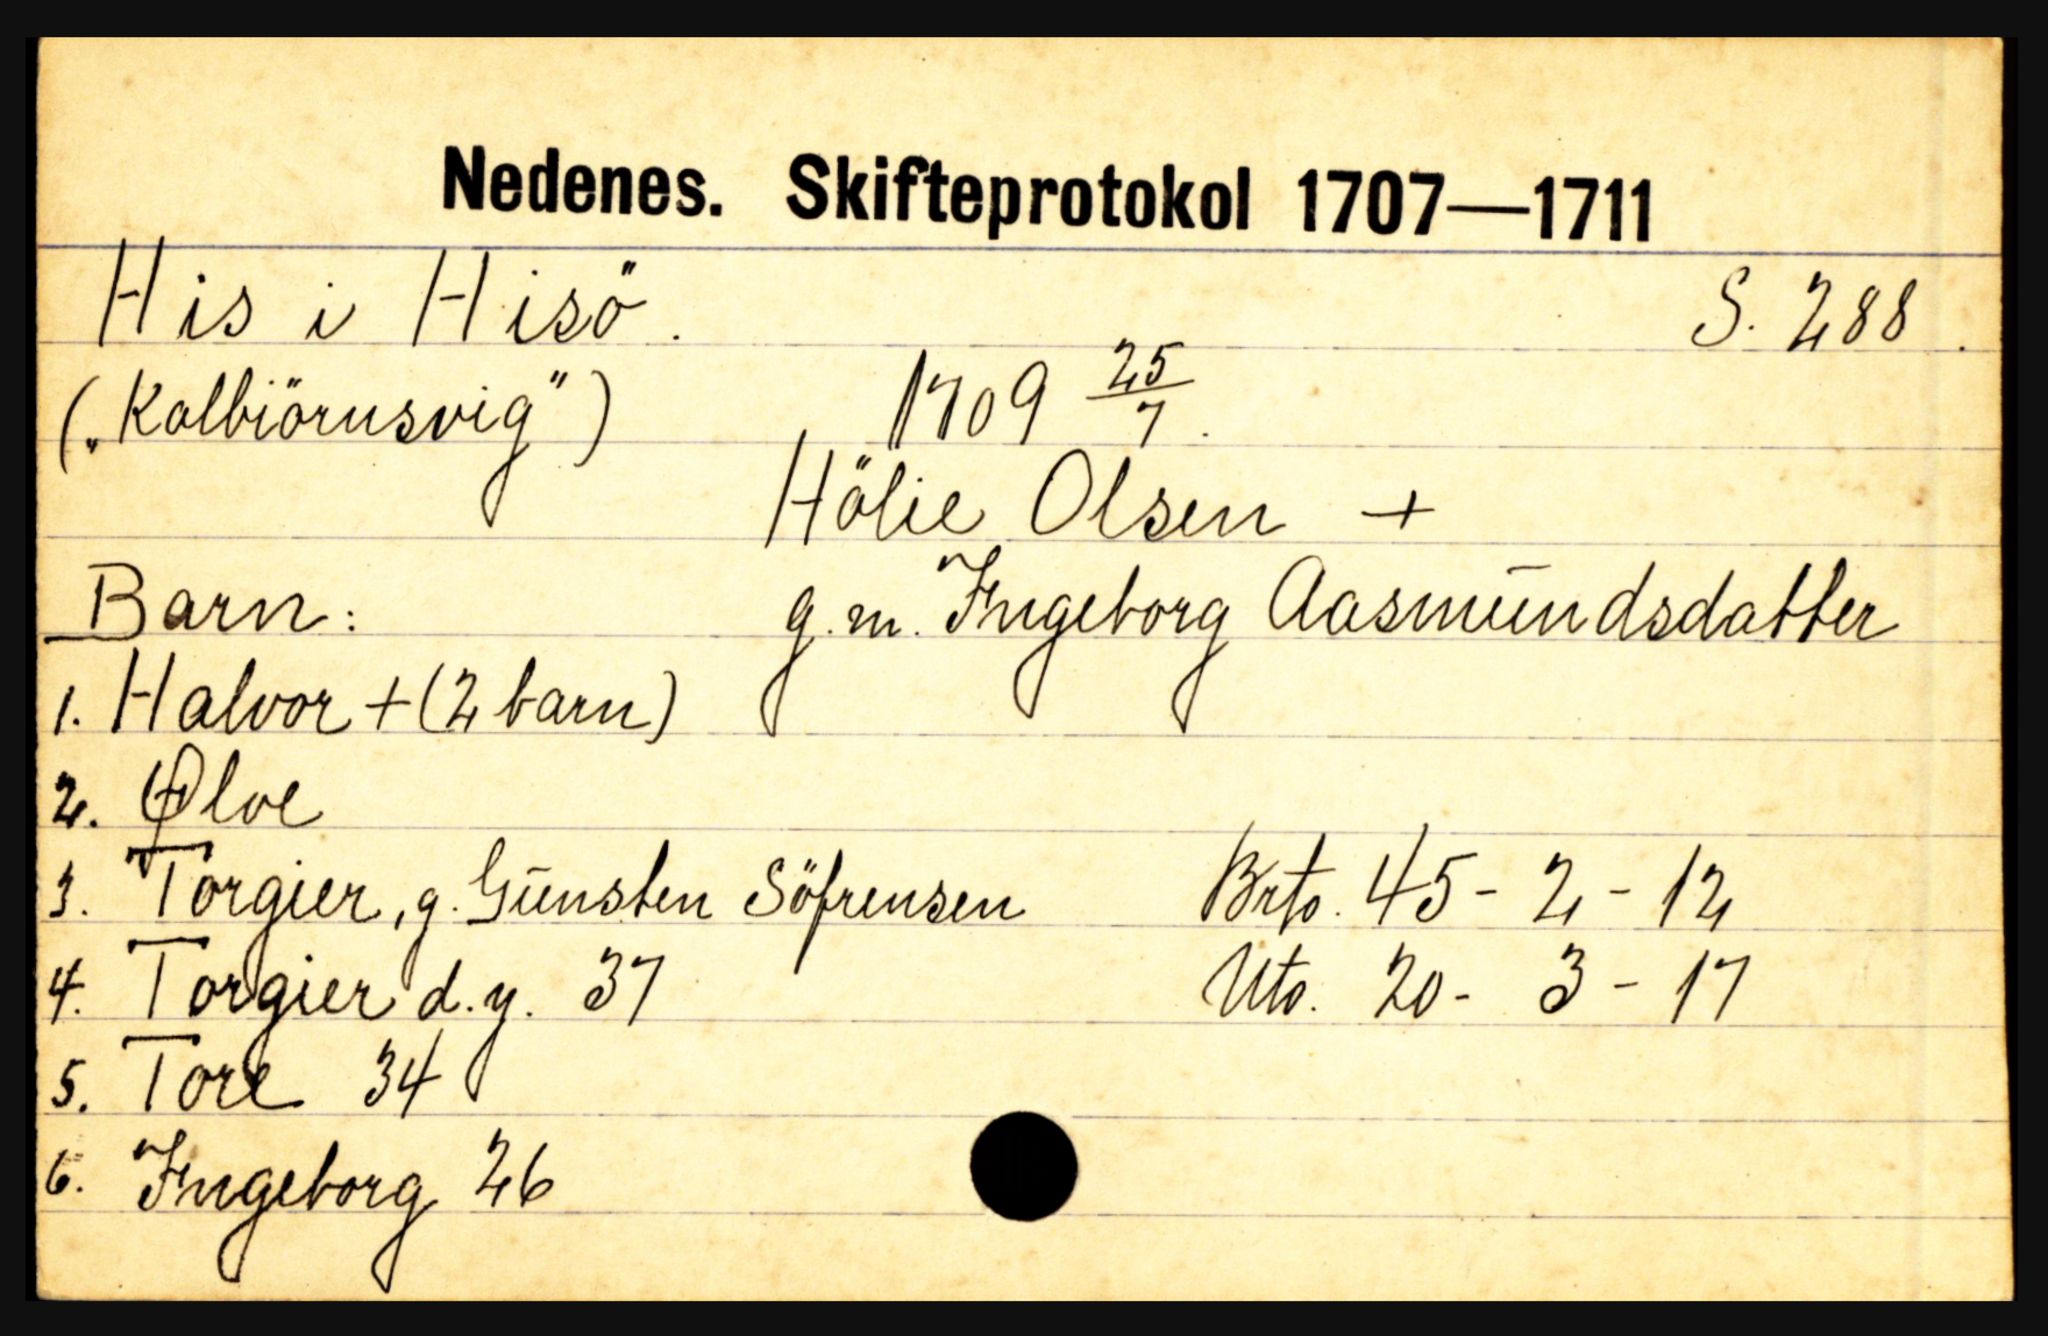 Nedenes. Skifteprotokol 1707—1711
His i Hisö. S. 288.
(„Kolbiörnsvig") 1709 25/7.
Hölie Olsen +
Barn: g. m. Ingeborg Aasmūndsdatter
1. Halvor + (2 barn)
2. Ølve
3. Torgier, g. Gūnsten Söfrensen Brto. 45 - 2 - 12
4. Torgier d. y. 37 Uto. 20 - 3 - 17
5. Tore 34
6. Ingeborg 26